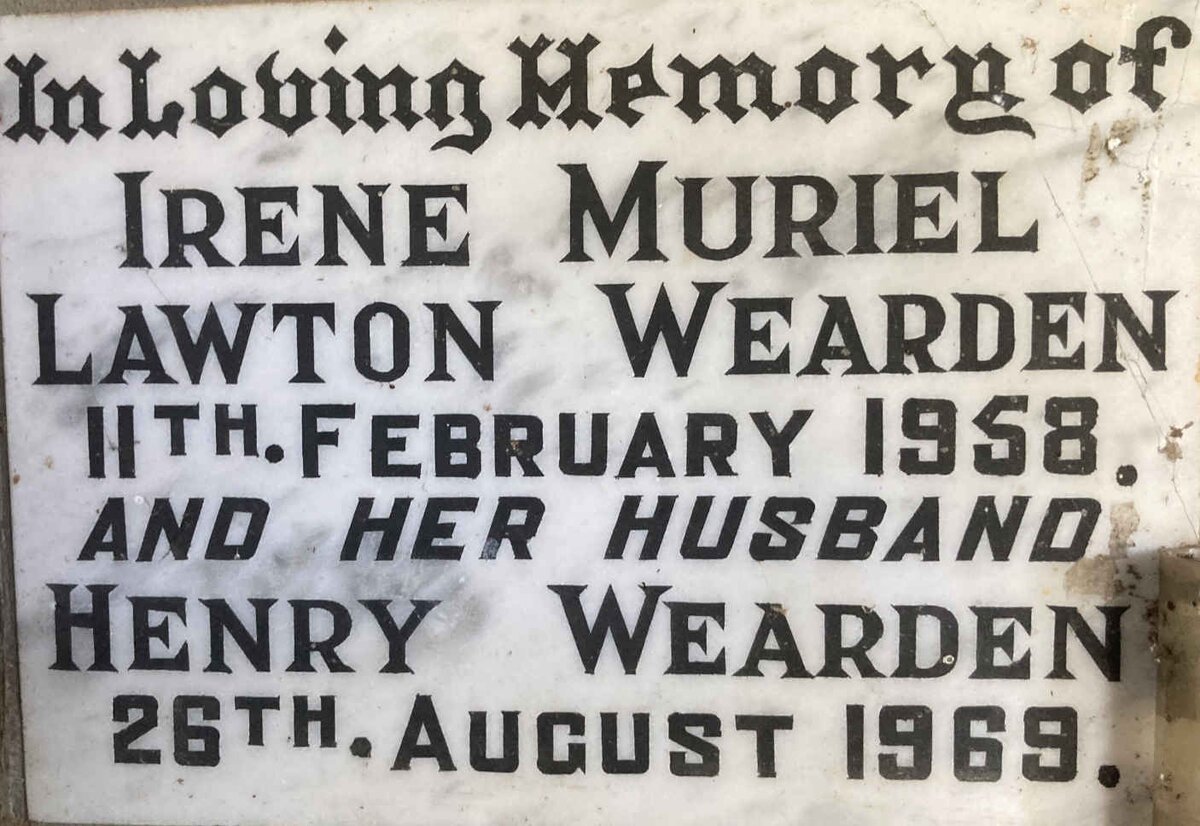 In Loving Memory of
IRENE MURIEL
LAWTON WEARDEN
11TH. FEBRUARY 1958.
AND HER HUSBAND
HENRY WEARDEN
26TH. AUGUST 1969.